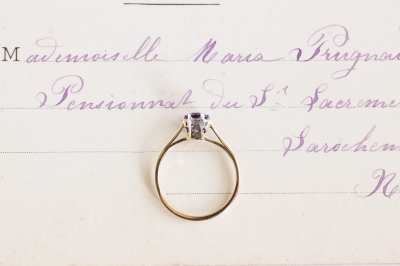 Mademoiselle Maria Prugnai
Pensionnat du St Sacreme
Larochem